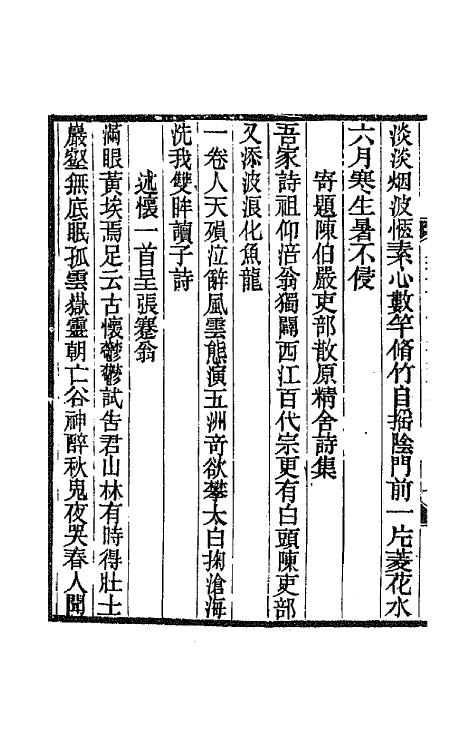 淡淡烟波愜素心數竿脩竹自搖陰門前一片菱花水
六月寒生暑不侵
寄題陳伯嚴吏部散原精舍詩集
吾家詩祖仰涪翁獨闢西江百代宗更有白頭陳吏部
又添波浪化魚龍
一卷人天殞泣辭風雲態演五洲奇欲攀太白掬滄海
洗我雙眸讀子詩
述懷一首呈張蹇翁
滿眼黃埃焉足云古懷鬱鬱試吿君山林有時得壯士
巖壑無底眠孤雲嶽靈朝亡谷神醉秋鬼夜哭春人聞